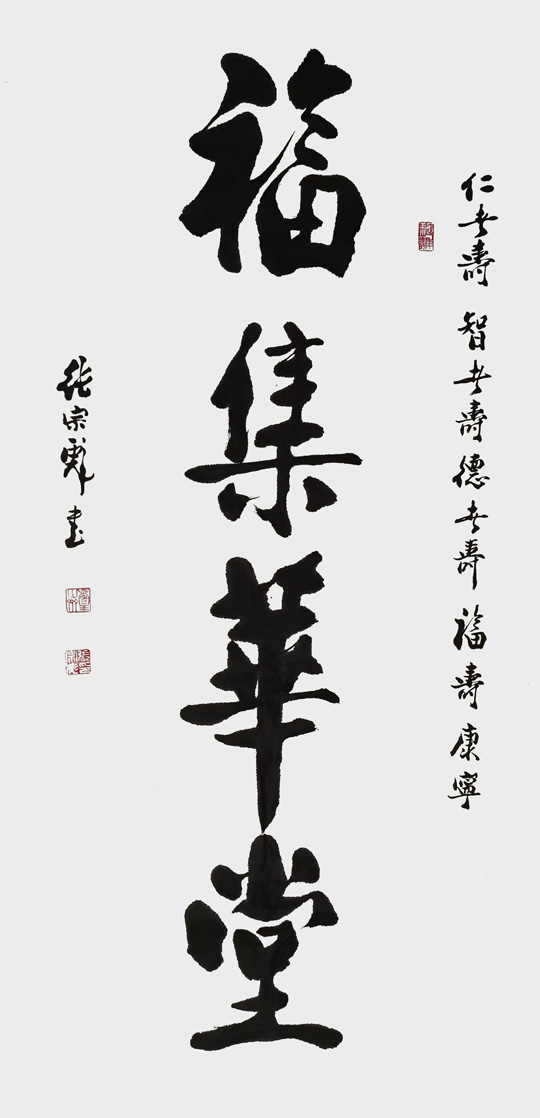 仁者壽智者壽德者壽福壽康寧
福集華堂
張宗彝書